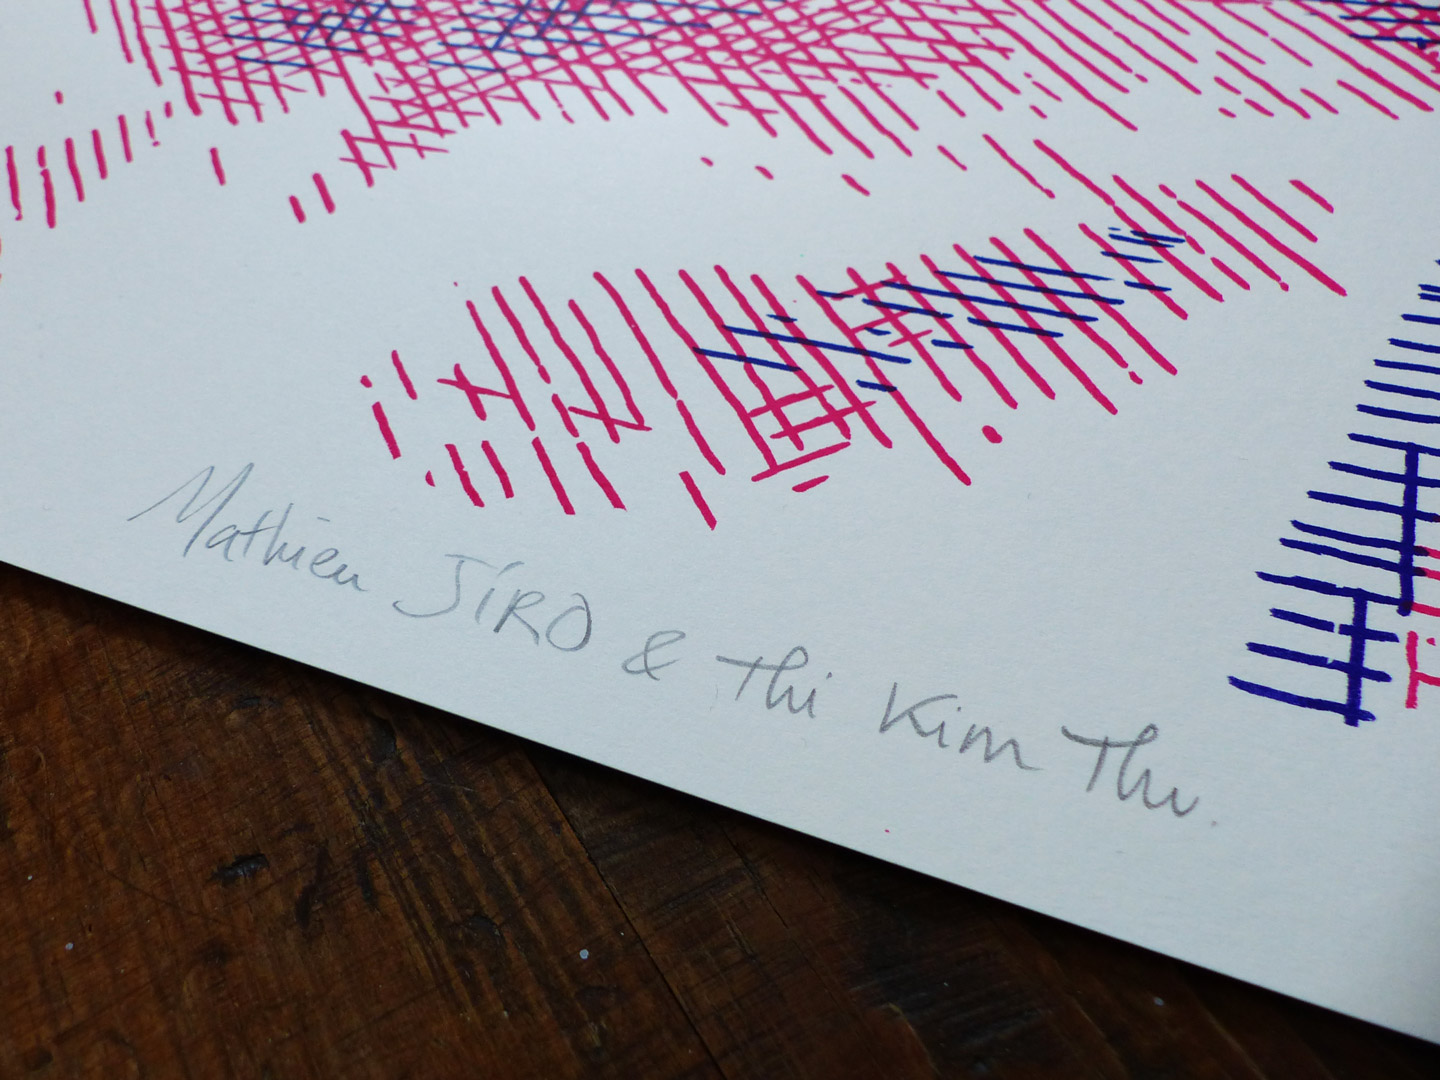 Mathieu JIRO & Thi Kim Thu.